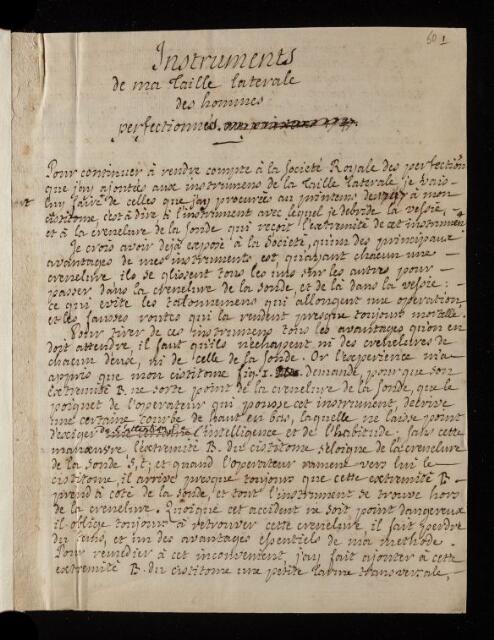 60 1
Instruments
de ma Taille laterale
des hommes
perfectionnés.
Pour continuer à rendre compte à la Société Royale des perfections
que j'ay ajoutés aux instrumens de la Taille laterale je vais
luy faire de celles que j'ay procurées au printems de 1747 à mon
cistitome, c'est à dire à l'instrument avec lequel je debride la vessie,
et à la crenelure de la sonde qui reçoit l'extremité de cet instrument
Je crois avoir deja exposé à la Société, qu'un des principaux
avantages de mes instruments est, qu'ayant chacun une
crenelure ils se glissent tous les uns sur les autres pour
passer dans la crenelure de la sonde, et de là dans la vessie:
ce qui evite les tatonnemens qui allongent une operation
et les fausses routes qui la rendent presque toujours mortelle.
Pour tirer de ces instrumens tous les avantages qu'on en
doit attendre, il faut qu'ils n'echapent ni des crenelures de
chacun deux, ni de celle de la sonde. Or l'experience m'a
appris que mon cistitome fig. 1. demande, pour que son
extremité B. ne sorte point de la crenelure de la sonde, que le
poignet de l'operateur qui pousse cet instrument, decrive
une certaine courbe de haut en bas, laquelle ne laisse point
d'exiger de l'attention de l'intelligence et de l'habitude; sans cette
manœuvre l'extremité B. du cistitome s'eloigne de la crenelure
de la sonde S, t; et quand l'operateur ramene vers lui le
cistitome, il arrive presque toujours que cette extremité B
prend à coté de la sonde, et tout l'instrument se trouve hors
de la crenelure. Quoique cet accident ne soit point dangereux
il oblige toujours à retrouver cette crenelure, il fait perdre
du tems, et un des avantages essentiels de ma methode.
Pour remedier à cet inconvenient, j'ay fait ajouter à cette
extremité B. du cistitome une petite larme transversale,